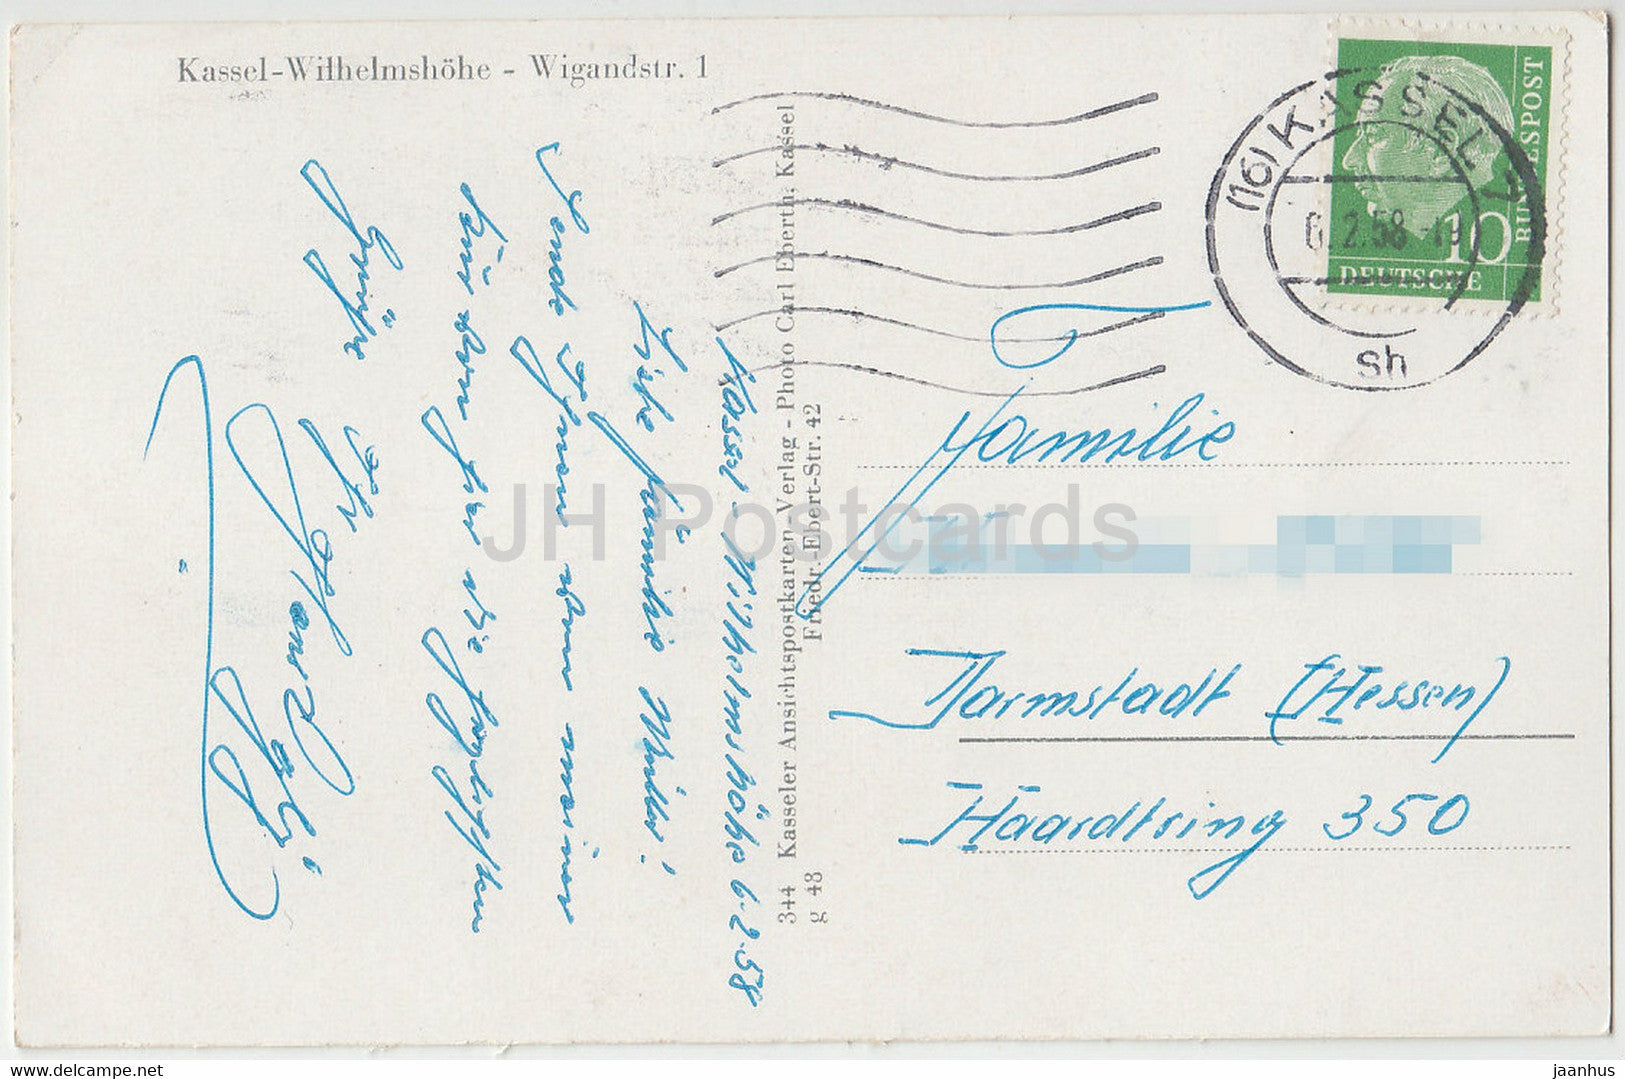 Kassel-Wilhelmshöhe - Wigandstr. 1
(16) KASSEL 7
6.2.58.-19
sh
10
DEUTSCHE
BUNDESPOST
344 Kasseler Ansichtspostkarten-Verlag - Photo Carl Eberth, Kassel
g 48 Friedr.-Ebert-Str. 42
Kassel-Wilhelmshöhe 6.2.58
Liebe Familie Müller!
Sende Ihnen von meiner
Kur von hier die herzlichsten
Grüße Ihr
Familie
Darmstadt (Hessen)
Haardtring 350
JH Postcards
delcampe.net
jaanhus